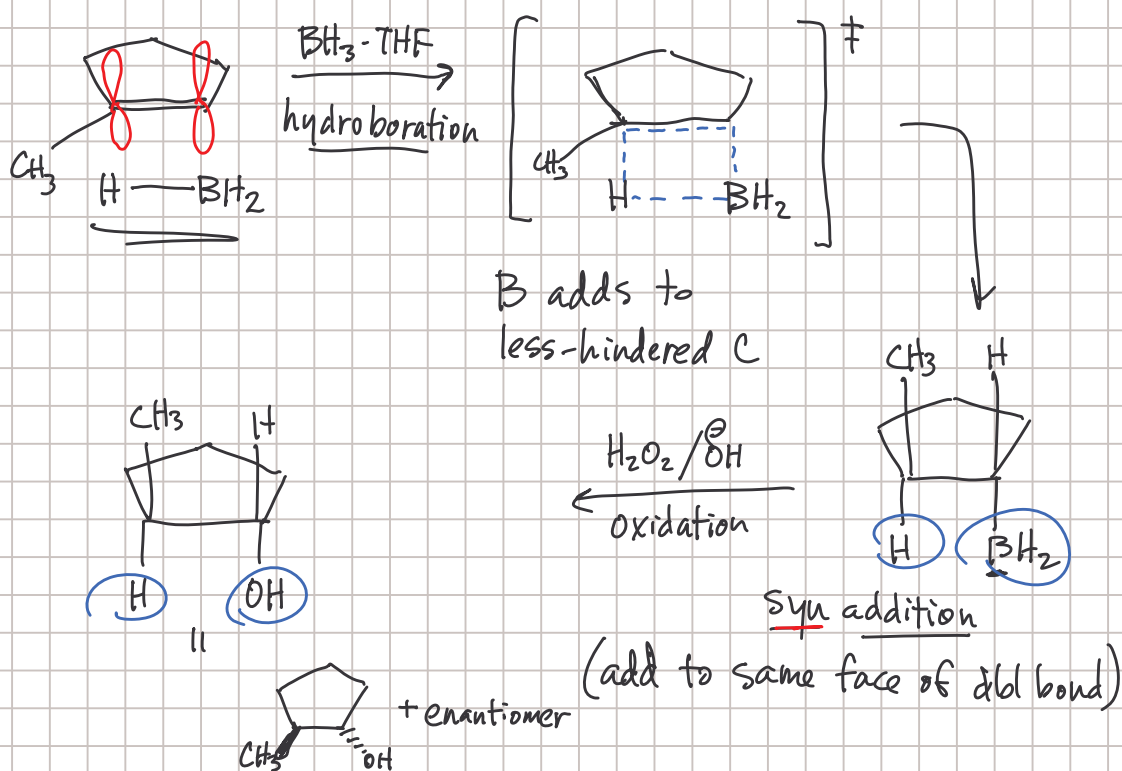 BH₃-THF
hydroboration
CH₃
H — BH₂
‡
CH₃
H BH₂
B adds to
less-hindered C
CH₃ H
H BH₂
syn addition
(add to same face of dbl bond)
H₂O₂/⊖OH
oxidation
CH₃ H
H OH
"
CH₃ OH
+ enantiomer